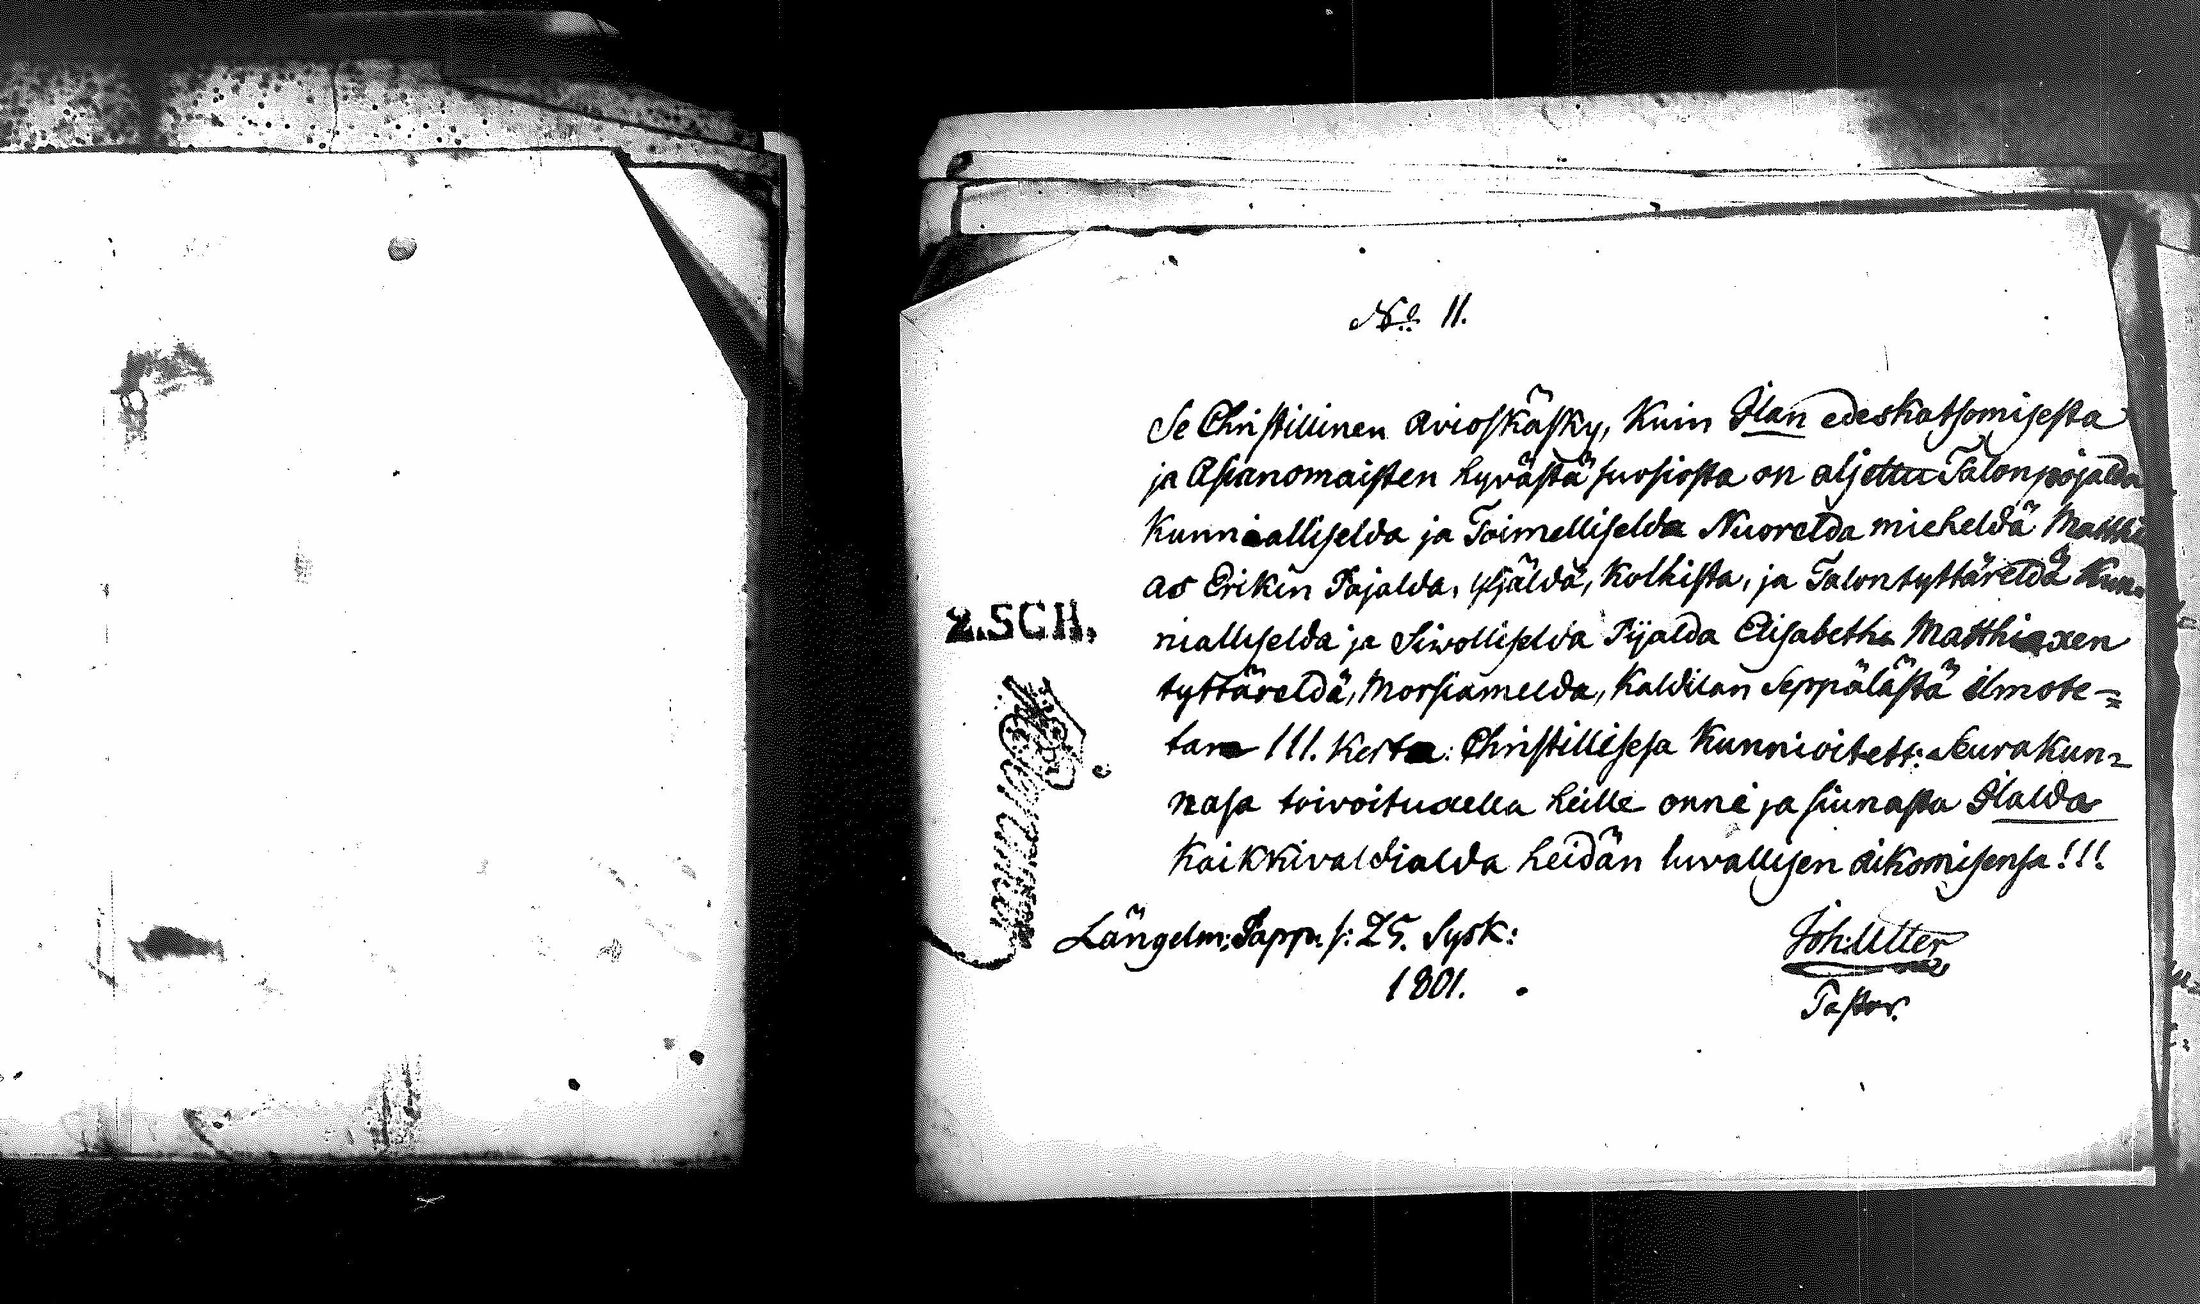 No 11.
Se Christillinen Avioskäsky, Kuin Jlan edeskatsomisesta
ja Asianomaisten hyvästä suosiosta on aljettu Talonpojalda
Kunnialliselda ja Toimelliselda Nuorelda mieheldä Matthi
as Erikin Pojalda, Yljäldä, Kolhista, ja Talontyttäreldä Kun-
nialliselda ja Siwolliselda Pijalda Elisabetha Matthiaxen
tyttäreldä, Morsiamelda, Kaldilan Seppälästä ilmote=
tan III. Kerta: Christillisesa Kunnioitett: Seurakun=
nasa toivoituxella heille onne ja siunasta Jlalda
Kaikkivaldialda heidän luvallisen aikomisensa!!!
2.SCH.
Längelm: Papp. s: 25. Sysk:
1801.
Joh: Utter
Pastor.